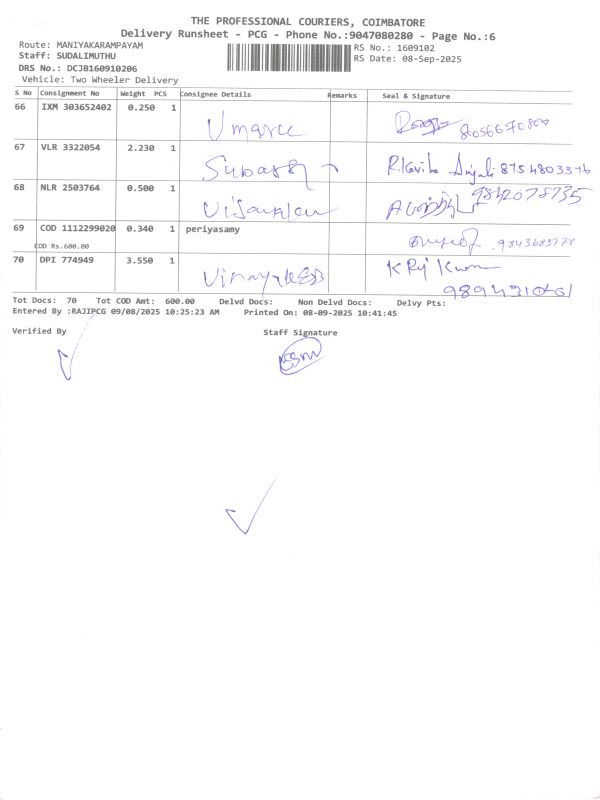 THE PROFESSIONAL COURIERS, COIMBATORE
Delivery Runsheet - PCG - Phone No.:9047080280 - Page No.:6
Route: MANIYAKARAMPAYAM
Staff: SUDALIMUTHU
DRS No.: DCJB160910206
Vehicle: Two Wheeler Delivery
RS No.: 1609102
RS Date: 08-Sep-2025
S No Consignment No Weight PCS Consignee Details Remarks Seal & Signature
66 IXM 303652402 0.250 1
67 VLR 3322054 2.230 1 Subash 8754803376
68 NLR 2503764 0.500 1 9842078735
69 COD 1112299020 0.340 1 periyasamy
COD Rs.600.00 9843683778
70 DPI 774949 3.550 1
Tot Docs: 70 Tot COD Amt: 600.00 Delvd Docs: Non Delvd Docs: Delvy Pts:
Entered By :RAJIPCG 09/08/2025 10:25:23 AM Printed On: 08-09-2025 10:41:45
Verified By Staff Signature